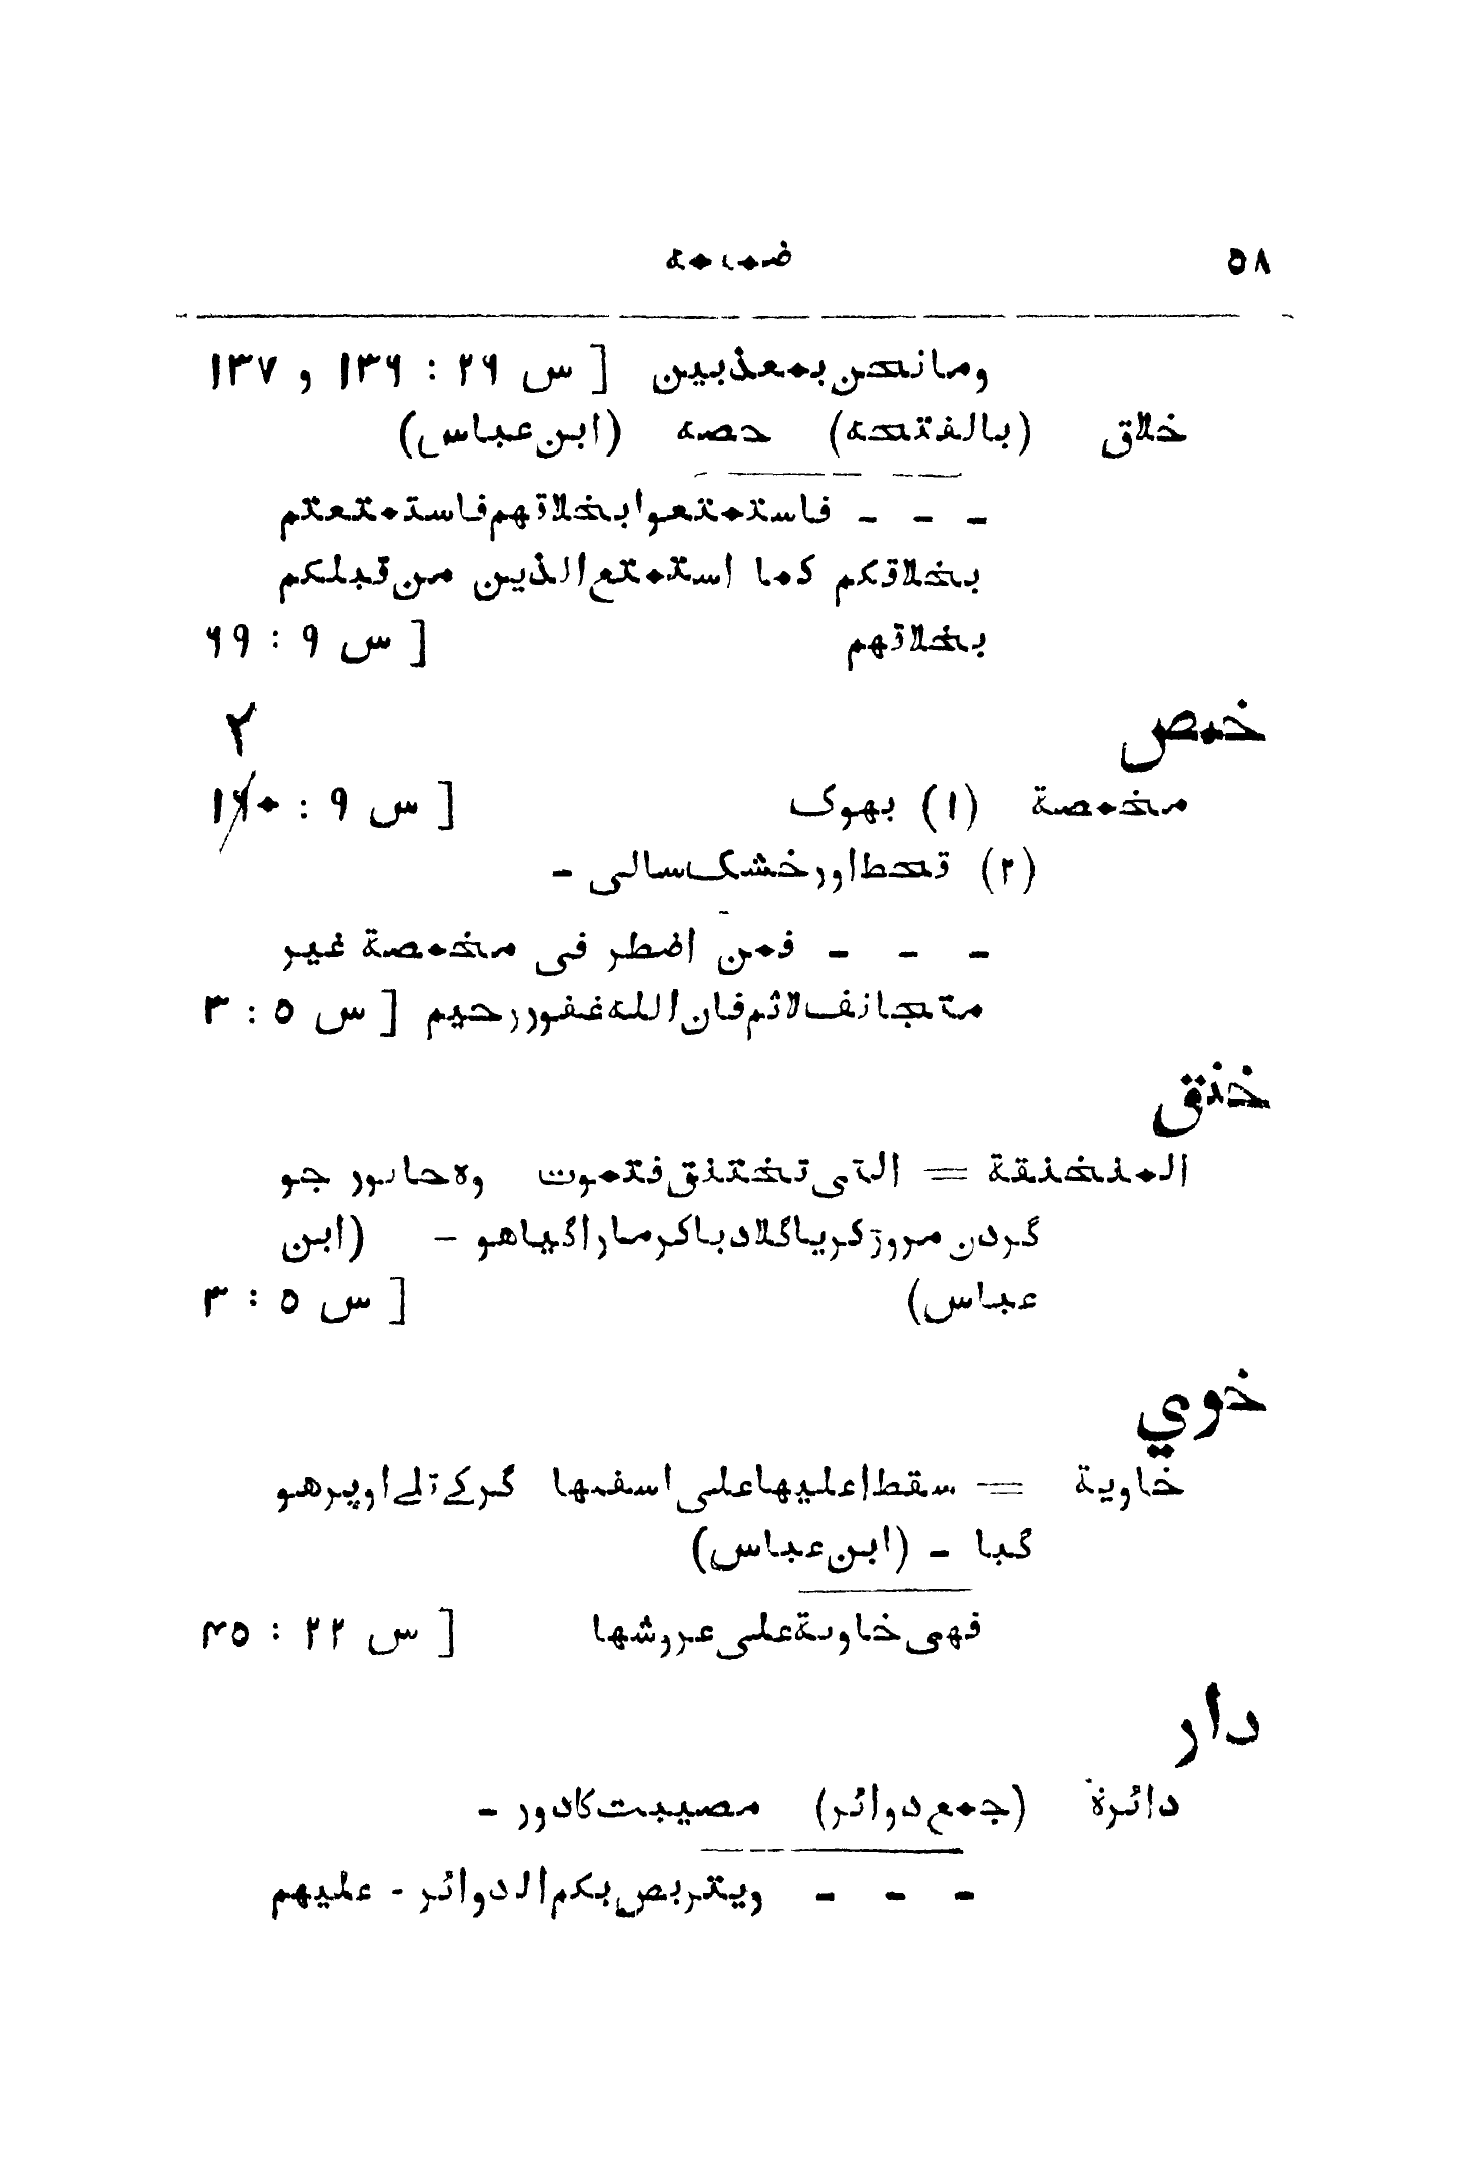 ۵۸ ضمیمه
وما نحن بمعذبین [ س ۲۶ : ۱۳۶ و ۱۳۷
خلاق (بالفتحه) حصه (ابن عباس)
- - - فاستمتعوا بخلاقهم فاستمتعتم
بخلاقکم کما استمتع الذین من قبلکم
بخلاقهم [ س ۹ : ۶۹
خمص ۲
مخمصة (۱) بهوک [ س ۹ :
(۲) قحط اور خشک سالی -
- - - فمن اضطر فی مخمصة غیر
متجانف لاثم فان الله غفور رحیم [ س ۵ : ۳
خنق
المنخنقة = التی تختنق فتموت وه جانور جو
گردن مروڑ کر یا گلا دبا کر مارا گیا هو - (ابن
عباس) [ س ۵ : ۳
خوي
خاویة = سقط اعلیها علی اسفلها گر کے تلے اوپر هو
گیا - (ابن عباس)
فهی خاویة علی عروشها [ س ۲۲ : ۴۵
دار
دائرة (جمع دوائر) مصیبت کا دور -
- - - ویتربص بکم الدوائر - علیهم